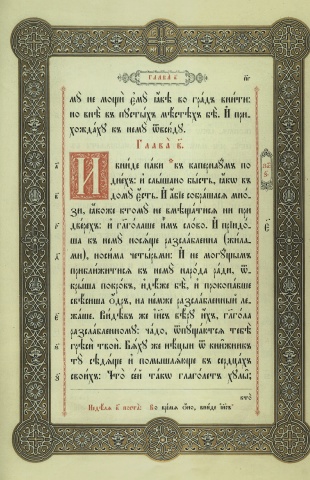 Глава̀ в҃
мꙋ не мощѝ є҆мꙋ̀ ꙗ҆́вѣ во гра́дъ вни́ти:
но внѣ̀ въ пꙋсты́хъ мѣ́стѣхъ бѣ̀. И҆ при-
хожда́хꙋ къ немꙋ̀ ѿвсю́дꙋ.
Глава̀ в҃.
И҆ вни́де па́ки въ капернаꙋ́мъ по
дне́хъ: и҆ слы́шано бы́сть, ꙗ҆́кѡ въ
домꙋ̀ є҆́сть. И҆ а҆́бїе собра́шасѧ мно́-
зи, ꙗ҆́коже ктомꙋ̀ не вмѣща́тисѧ ни при
две́рехъ: и҆ глаго́лаше и҆̀мъ сло́во. И҆ прїидо́-
ша къ немꙋ̀ носѧ́ще разсла́блена (жи́ла-
ми), носи́ма четы́рьми. И҆ не могꙋ́щымъ
прибли́житисѧ къ немꙋ̀ наро́да ра́ди, ѿ-
кры́ша покро́въ, и҆дѣ́же бѣ̀, и҆ прокопа́вше
свѣ́сиша ѻ҆́дръ, на не́мже разсла́бленный ле-
жа́ше. Ви́дѣвъ же і҆и҃съ вѣ́рꙋ и҆́хъ, глаго́ла
разсла́бленномꙋ: ча́до, ѿпꙋща́ютсѧ тебѣ̀
грѣсѝ твоѝ. Бѧ́хꙋ же нѣ́цыи ѿ кни̑жникъ
тꙋ̀ сѣдѧ́ще и҆ помышлѧ́юще въ сердца́хъ
свои́хъ: Что̀ се́й та́кѡ глаго́летъ хꙋлы̑;
кто̀
Недѣ́лѧ в҃ поста̀: Во вре́мѧ ѻ҆́но, вни́де і҆и҃съ